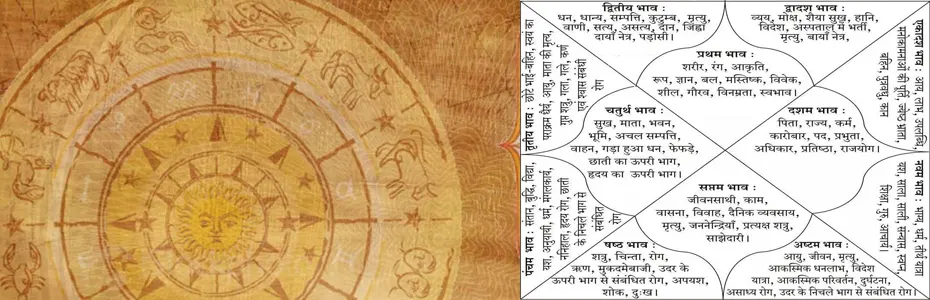 द्वितीय भाव :
धन, धान्य, सम्पत्ति, कुटुम्ब, मृत्यु,
वाणी, सत्य, असत्य, दान, जिह्वा
दायाँ नेत्र, पड़ोसी।
द्वादश भाव :
व्यय, मोक्ष, शैया सुख, हानि,
विदेश, अस्पताल में भर्ती,
मृत्यु, बायाँ नेत्र,
प्रथम भाव :
शरीर, रंग, आकृति,
रूप, ज्ञान, बल, मस्तिष्क, विवेक,
शील, गौरव, विनम्रता, स्वभाव।
तृतीय भाव : छोटे भाई-बहिन, स्वयं का
पराक्रम धैर्य, आयु, माता की मृत्यु,
गुप्त शत्रु, गला, गले, कर्ण
एवं श्वास संबंधी
रोग
एकादश भाव : आय, लाभ,
मनोकामनाओं की पूर्ति, ज्येष्ठ भ्राता,
बहिन, पुत्रवधु, कान
चतुर्थ भाव :
सुख, माता, भवन,
भूमि, अचल सम्पत्ति,
वाहन, गड़ा हुआ धन, फेफड़े,
छाती का ऊपरी भाग,
हृदय का ऊपरी भाग।
दशम भाव :
पिता, राज्य, कर्म,
कारोबार, पद, प्रभुता,
अधिकार, प्रतिष्ठा, राजयोग।
पंचम भाव : संतान, बुद्धि, विद्या,
यश, अनुयायी, धर्म, मंगलकार्य,
ननिहाल, हृदय रोग, छाती
के निचले भाग से
संबंधित
रोग
नवम भाव : भाग्य, धर्म, तीर्थ यात्रा
यश, साला, साली, संन्यास, स्वप्न,
शिक्षा, गुरु, आचार्य।
सप्तम भाव :
जीवनसाथी, काम,
वासना, विवाह, दैनिक व्यवसाय,
मृत्यु, जननेन्द्रियाँ, प्रत्यक्ष शत्रु,
साझेदारी।
षष्ठ भाव :
शत्रु, चिन्ता, रोग,
ऋण, मुकदमेबाजी, उदर के
ऊपरी भाग से संबंधित रोग, अपयश,
शोक, दुःख।
अष्टम भाव :
आयु, जीवन, मृत्यु,
आकस्मिक धनलाभ, विदेश
यात्रा, आकस्मिक परिवर्तन, दुर्घटना,
असाध्य रोग, उदर के निचले भाग से संबंधित रोग।